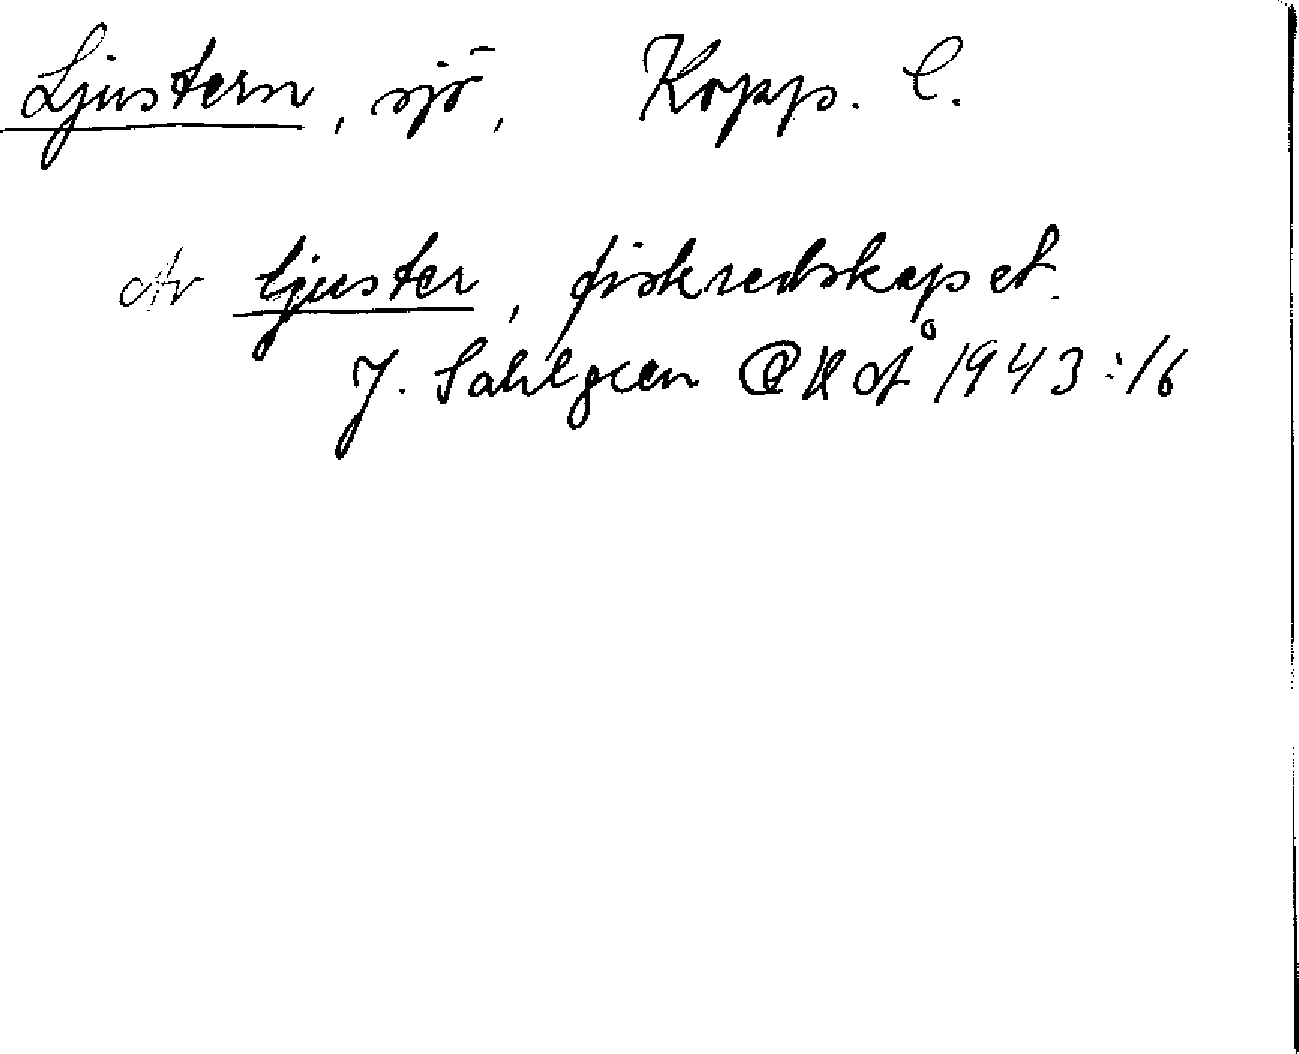 Ljustern, sjö, Kopp. l.
Av ljuster, fiskredskapet.
J. Sahlgren OUÅ 1943:16